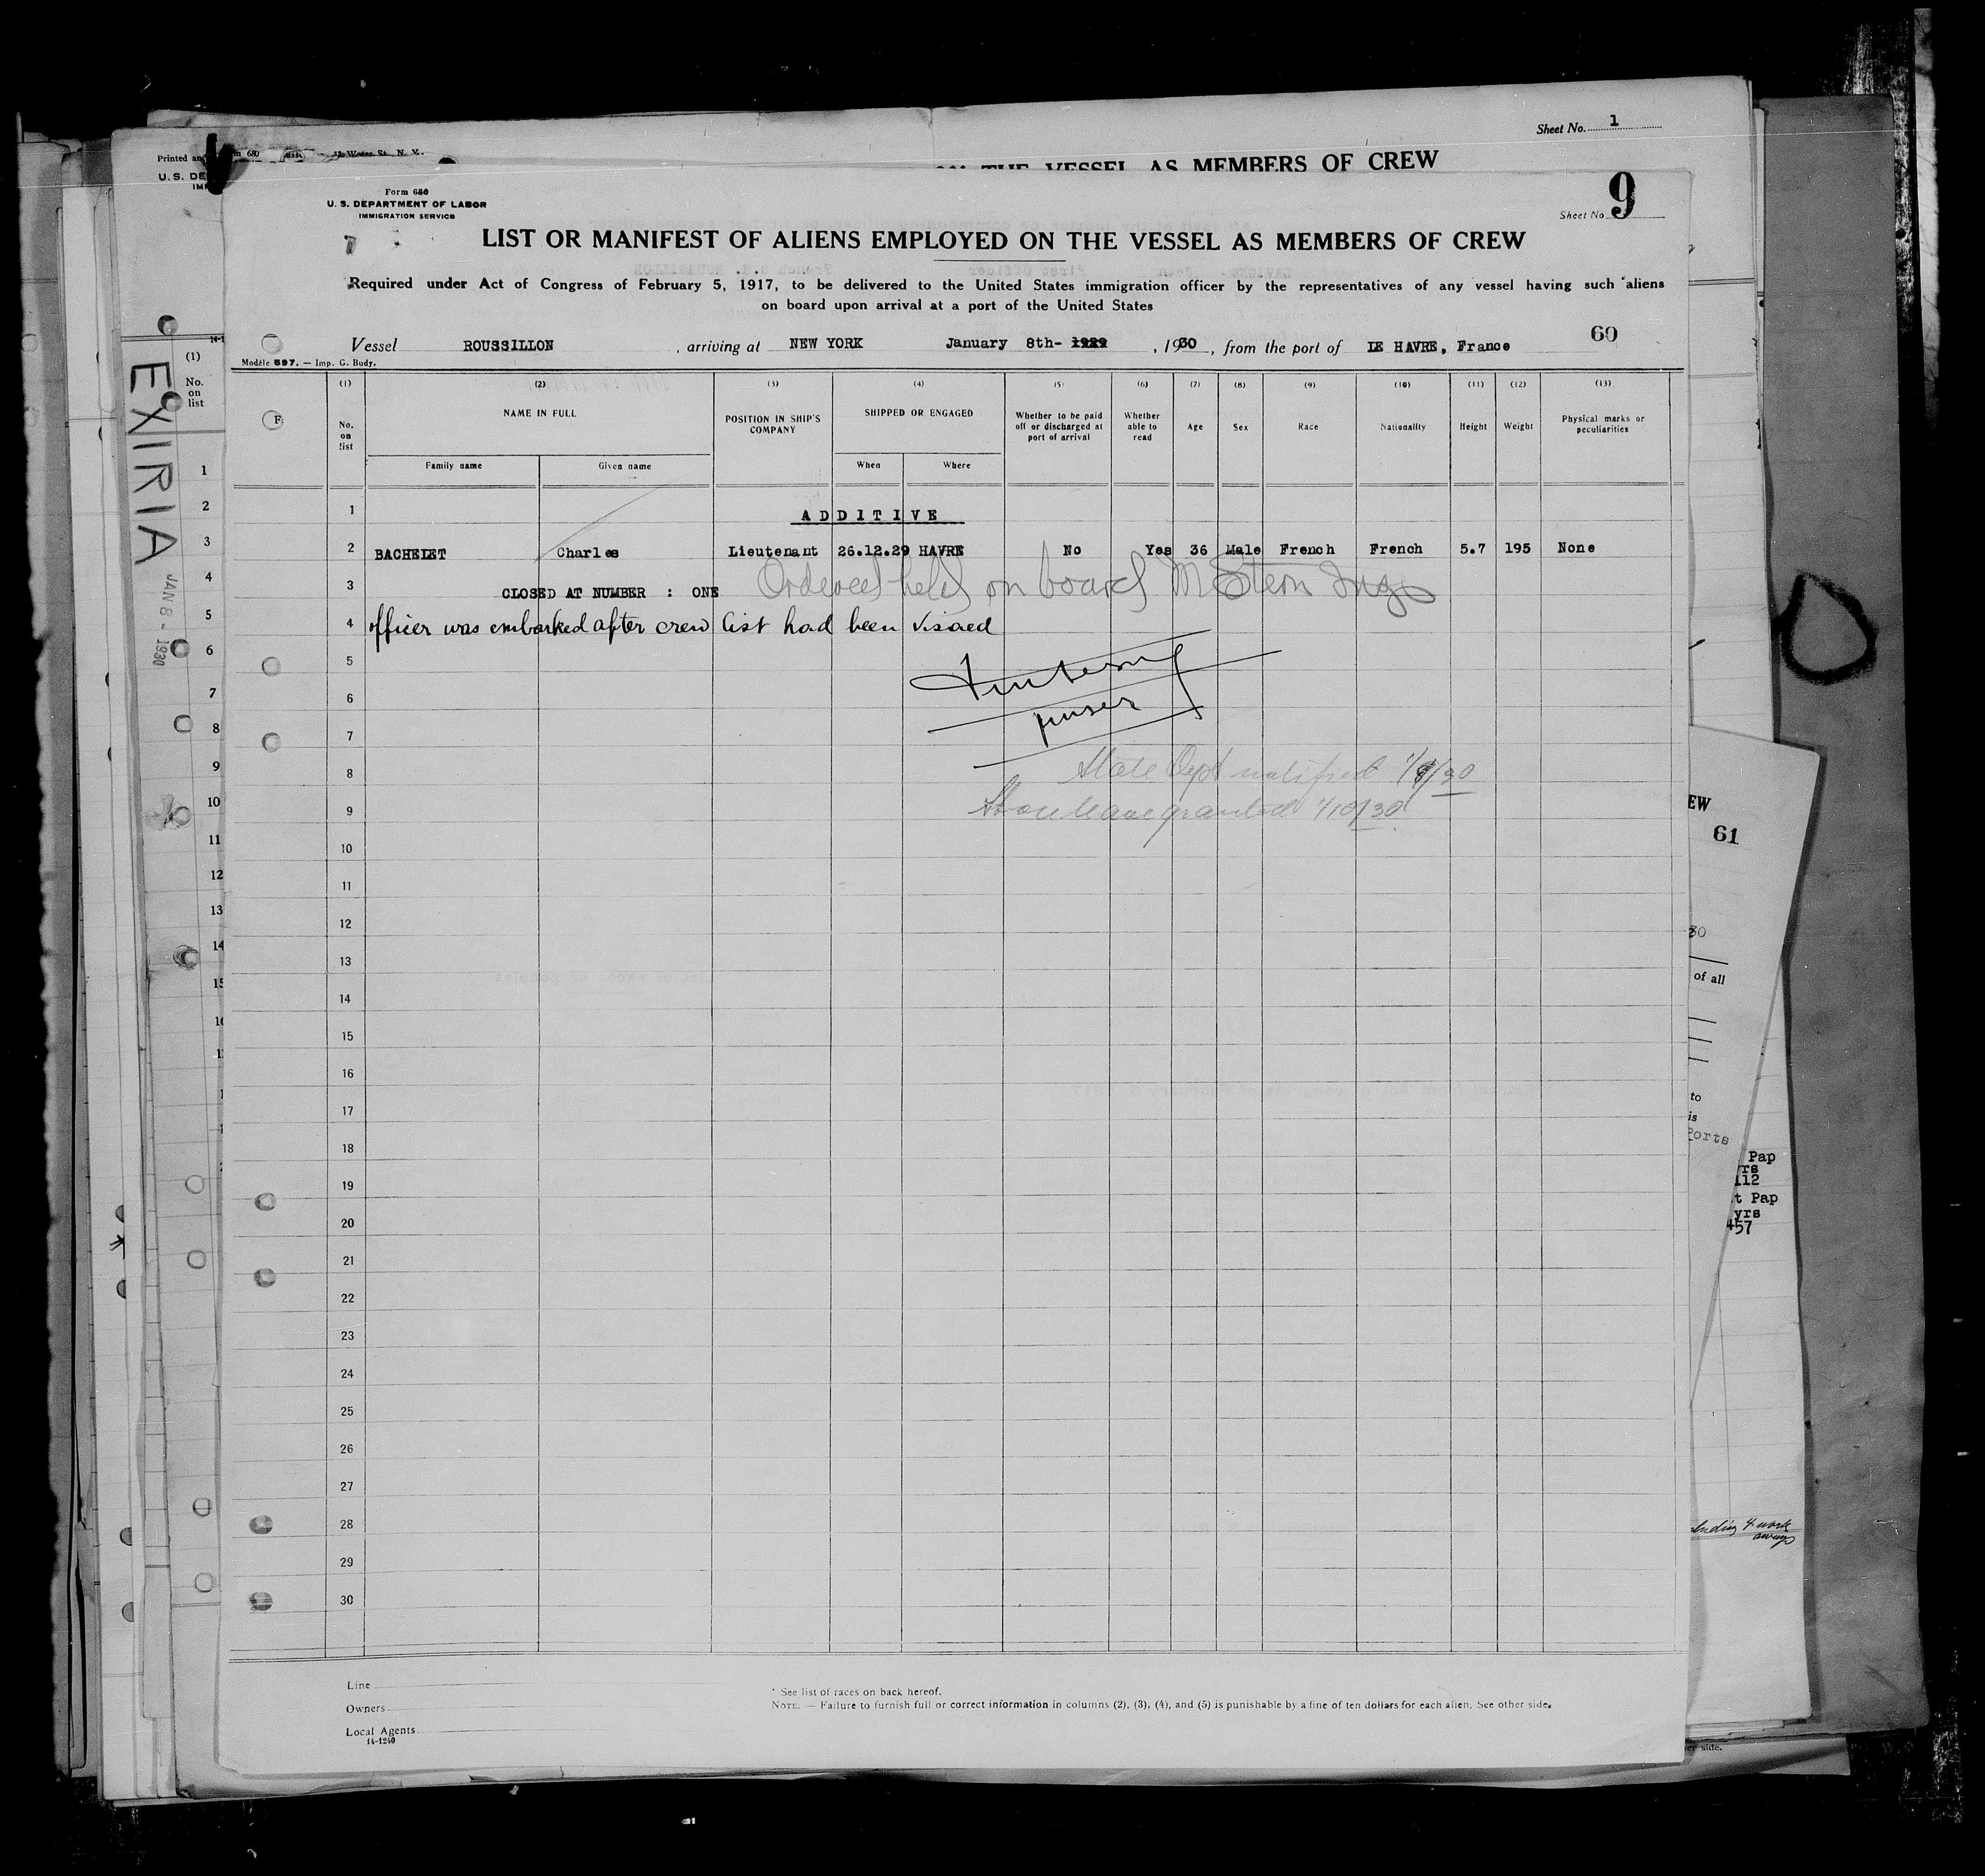 Sheet No. 1
Printed an
m 680
Water St., N. Y.
U. S. DE
THE VESSEL AS MEMBERS OF CREW
Form 680
U. S. DEPARTMENT OF LABOR
IMMIGRATION SERVICE
Sheet No. 9
LIST OR MANIFEST OF ALIENS EMPLOYED ON THE VESSEL AS MEMBERS OF CREW
Required under Act of Congress of February 5, 1917, to be delivered to the United States immigration officer by the representatives of any vessel having such aliens
on board upon arrival at a port of the United States
60
Vessel ROUSSILLON, arriving at NEW YORK January 8th- 1929, 1930, from the port of LE HAVRE, France
Modèle 597. — Imp. G. Budy.
(1) (2) (3) (4) (5) (6) (7) (8) (9) (10) (11) (12) (13)
No. on list
NAME IN FULL
Family name
Given name
POSITION IN SHIP'S COMPANY
SHIPPED OR ENGAGED
When
Where
Whether to be paid off or discharged at port of arrival
Whether able to read
Age
Sex
Race
Nationality
Height
Weight
Physical marks or peculiarities
F
1 ADDITIVE
2 BACHELET Charles Lieutenant 26.12.29 HAVRE No Yes 36 Male French French 5.7 195 None
3 CLOSED AT NUMBER : ONE Ordered held on board M Stern Insp
4 officer was embarked after crew list had been visaed
5
6
purser
7
8 State Dept notified 1/9/30
9 Shore leave granted 1/10/30
10
11
12
13
14
15
16
17
18
19
20
21
22
23
24
25
26
27
28
29
30
Line
Owners
Local Agents
14-1240
* See list of races on back hereof.
NOTE. — Failure to furnish full or correct information in columns (2), (3), (4), and (5) is punishable by a fine of ten dollars for each alien. See other side.
(1)
No.
on
list
EXIRIA
JAN 8 - 1930
1
2
3
4
5
6
7
8
9
10
11
12
13
14
EW
61
30
of all
to
is
Ports
Pap
yrs
112
t Pap
yrs
457
4 work
aways
er side.